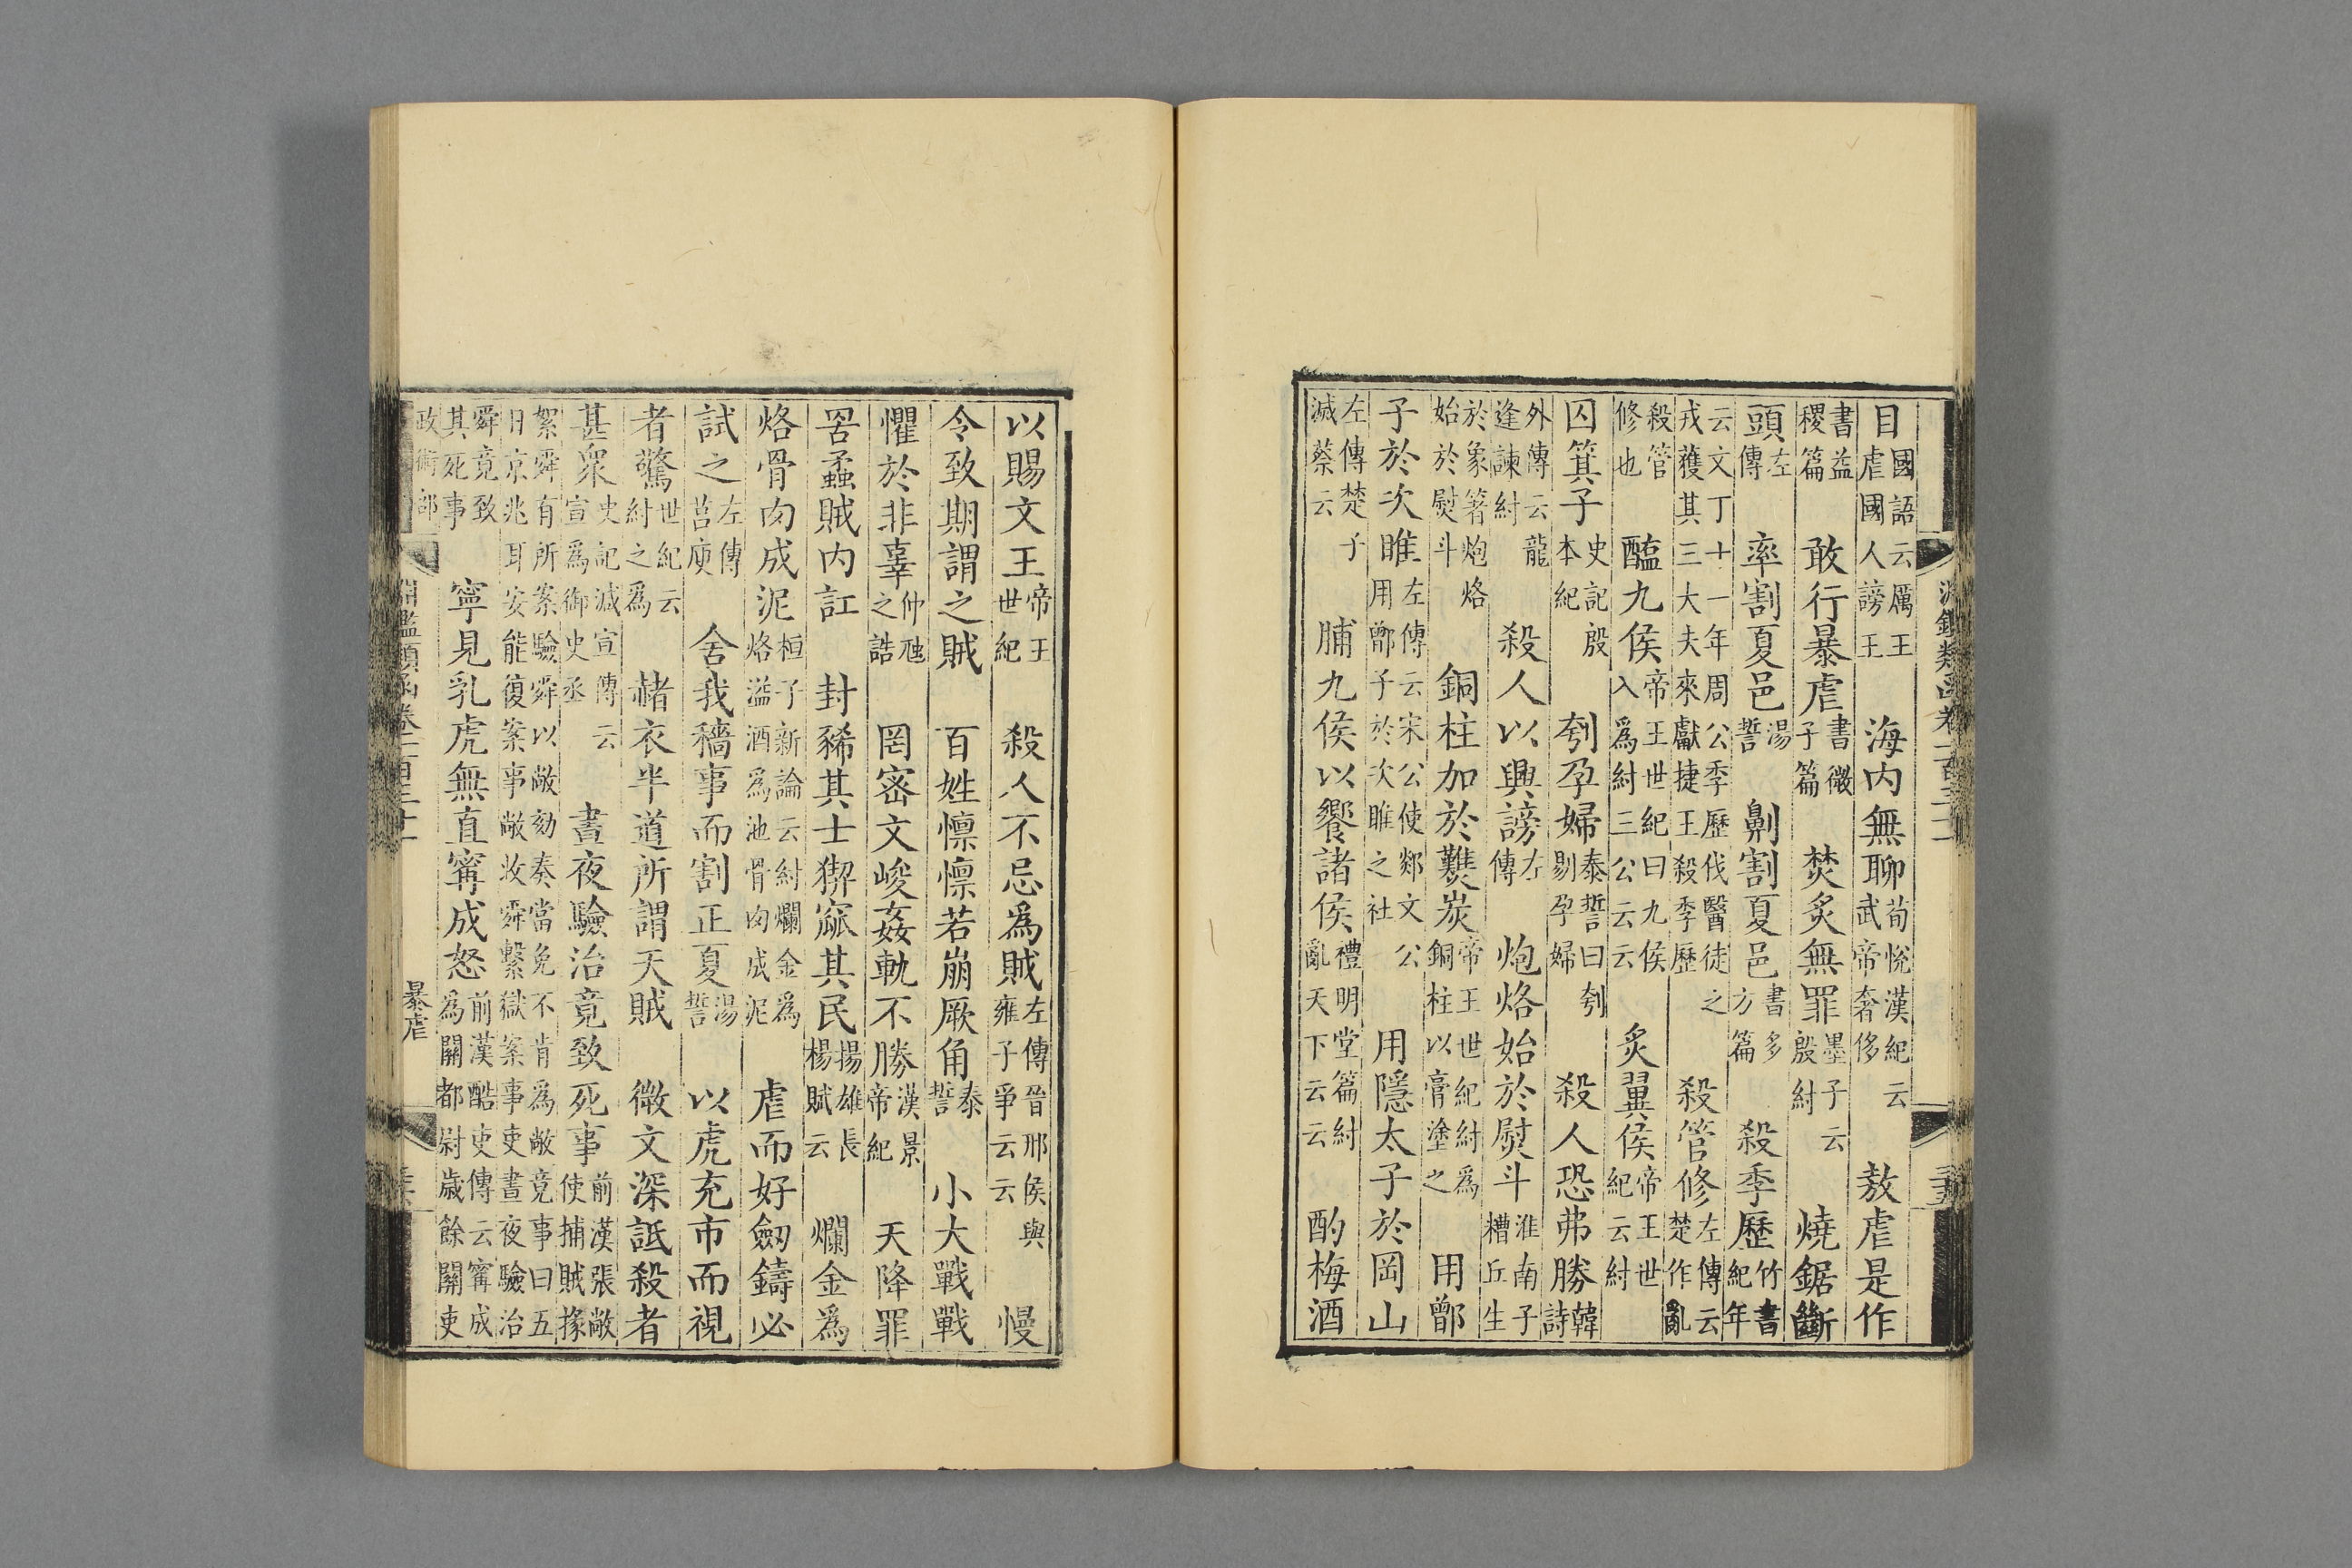 目國語云厲王虐國人謗王　海内無聊荀悅漢紀云武帝奢侈　敖虐是作
書益稷篇　敢行暴虐書微子篇　焚炙無罪墨子云殷紂　燒鋸斷
頭左傳　率割夏邑湯誓　劓割夏邑書多方篇　殺季歷竹書紀年
云文丁十一年周公季歷伐醫徒之戎獲其三大夫來獻捷王殺季歷　殺管修左傳云楚作亂
殺管修也　醢九侯帝王世紀曰九侯入爲紂三公云云　炙翼侯帝王世紀云紂
囚箕子史記殷本紀　刳孕婦泰誓曰刳剔孕婦　殺人恐弗勝韓詩
外傳云龍逢諫紂　殺人以興謗左傳　炮烙始於熨斗淮南子糟丘生
於象箸炮烙始於熨斗　銅柱加於爇炭帝王世紀紂爲銅柱以膏塗之　用鄫
子於次睢左傳云宋公使邾文公用鄫子於次睢之社　用隱太子於岡山
左傳楚子滅蔡云　脯九侯以饗諸侯禮明堂篇紂亂天下云云　酌梅酒
以賜文王帝王世紀　殺人不忌爲賊左傳晉邢侯與雍子爭云云　慢
令致期謂之賊　百姓懍懍若崩厥角泰誓　小大戰戰
懼於非辜仲虺之誥　罔密文峻姦軌不勝漢景帝紀　天降罪
罟蟊賊内訌　封豨其士猰窳其民揚雄長楊賦云　爛金爲
烙骨肉成泥桓子新論云紂爛金爲烙溢酒爲池骨肉成泥　虐而好劒鑄必
試之左傳莒庾　舍我穡事而割正夏湯誓　以虎充市而視
者驚世紀云紂之爲　赭衣半道所謂天賊　微文深詆殺者
甚衆史記減宣傳云宣爲御史丞　晝夜驗治竟致死事前漢張敞使捕賊掾
絮舜有所案驗舜以敞劾奏當免不肯爲敞竟事曰五日京兆耳安能復案事敞收舜繫獄案事吏晝夜驗治
舜竟致其死事　寧見乳虎無直甯成怒前漢酷吏傳云甯成爲關都尉歲餘關吏
政術部　淵鑑類函卷一百二十二　暴虐